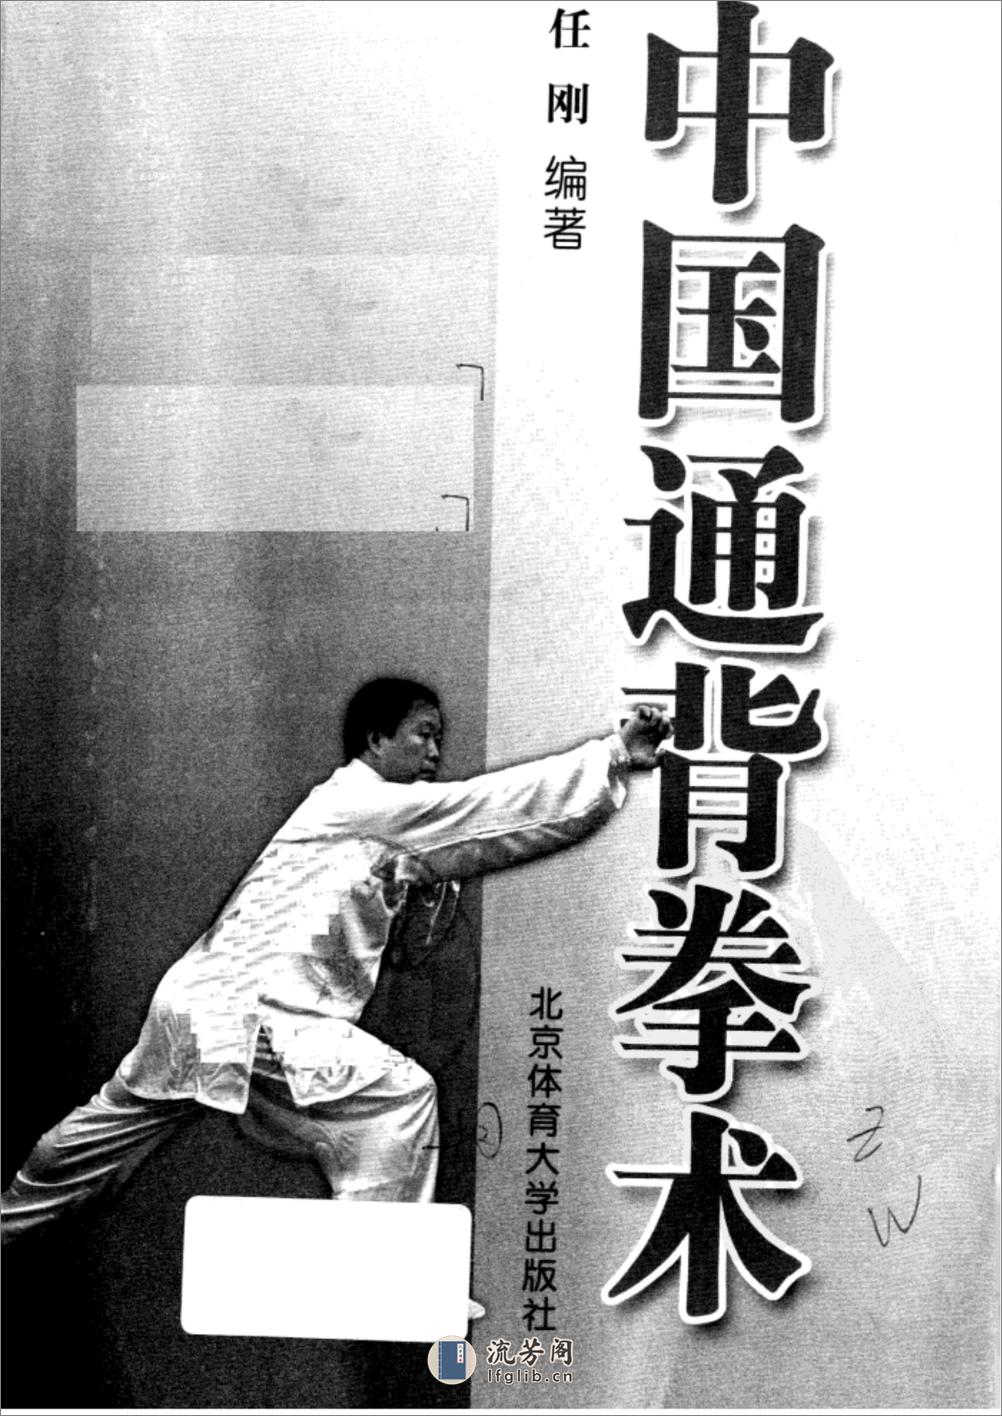 中国通背拳术
任刚 编著
北京体育大学出版社
Z
W
②
流芳阁
lfglib.cn